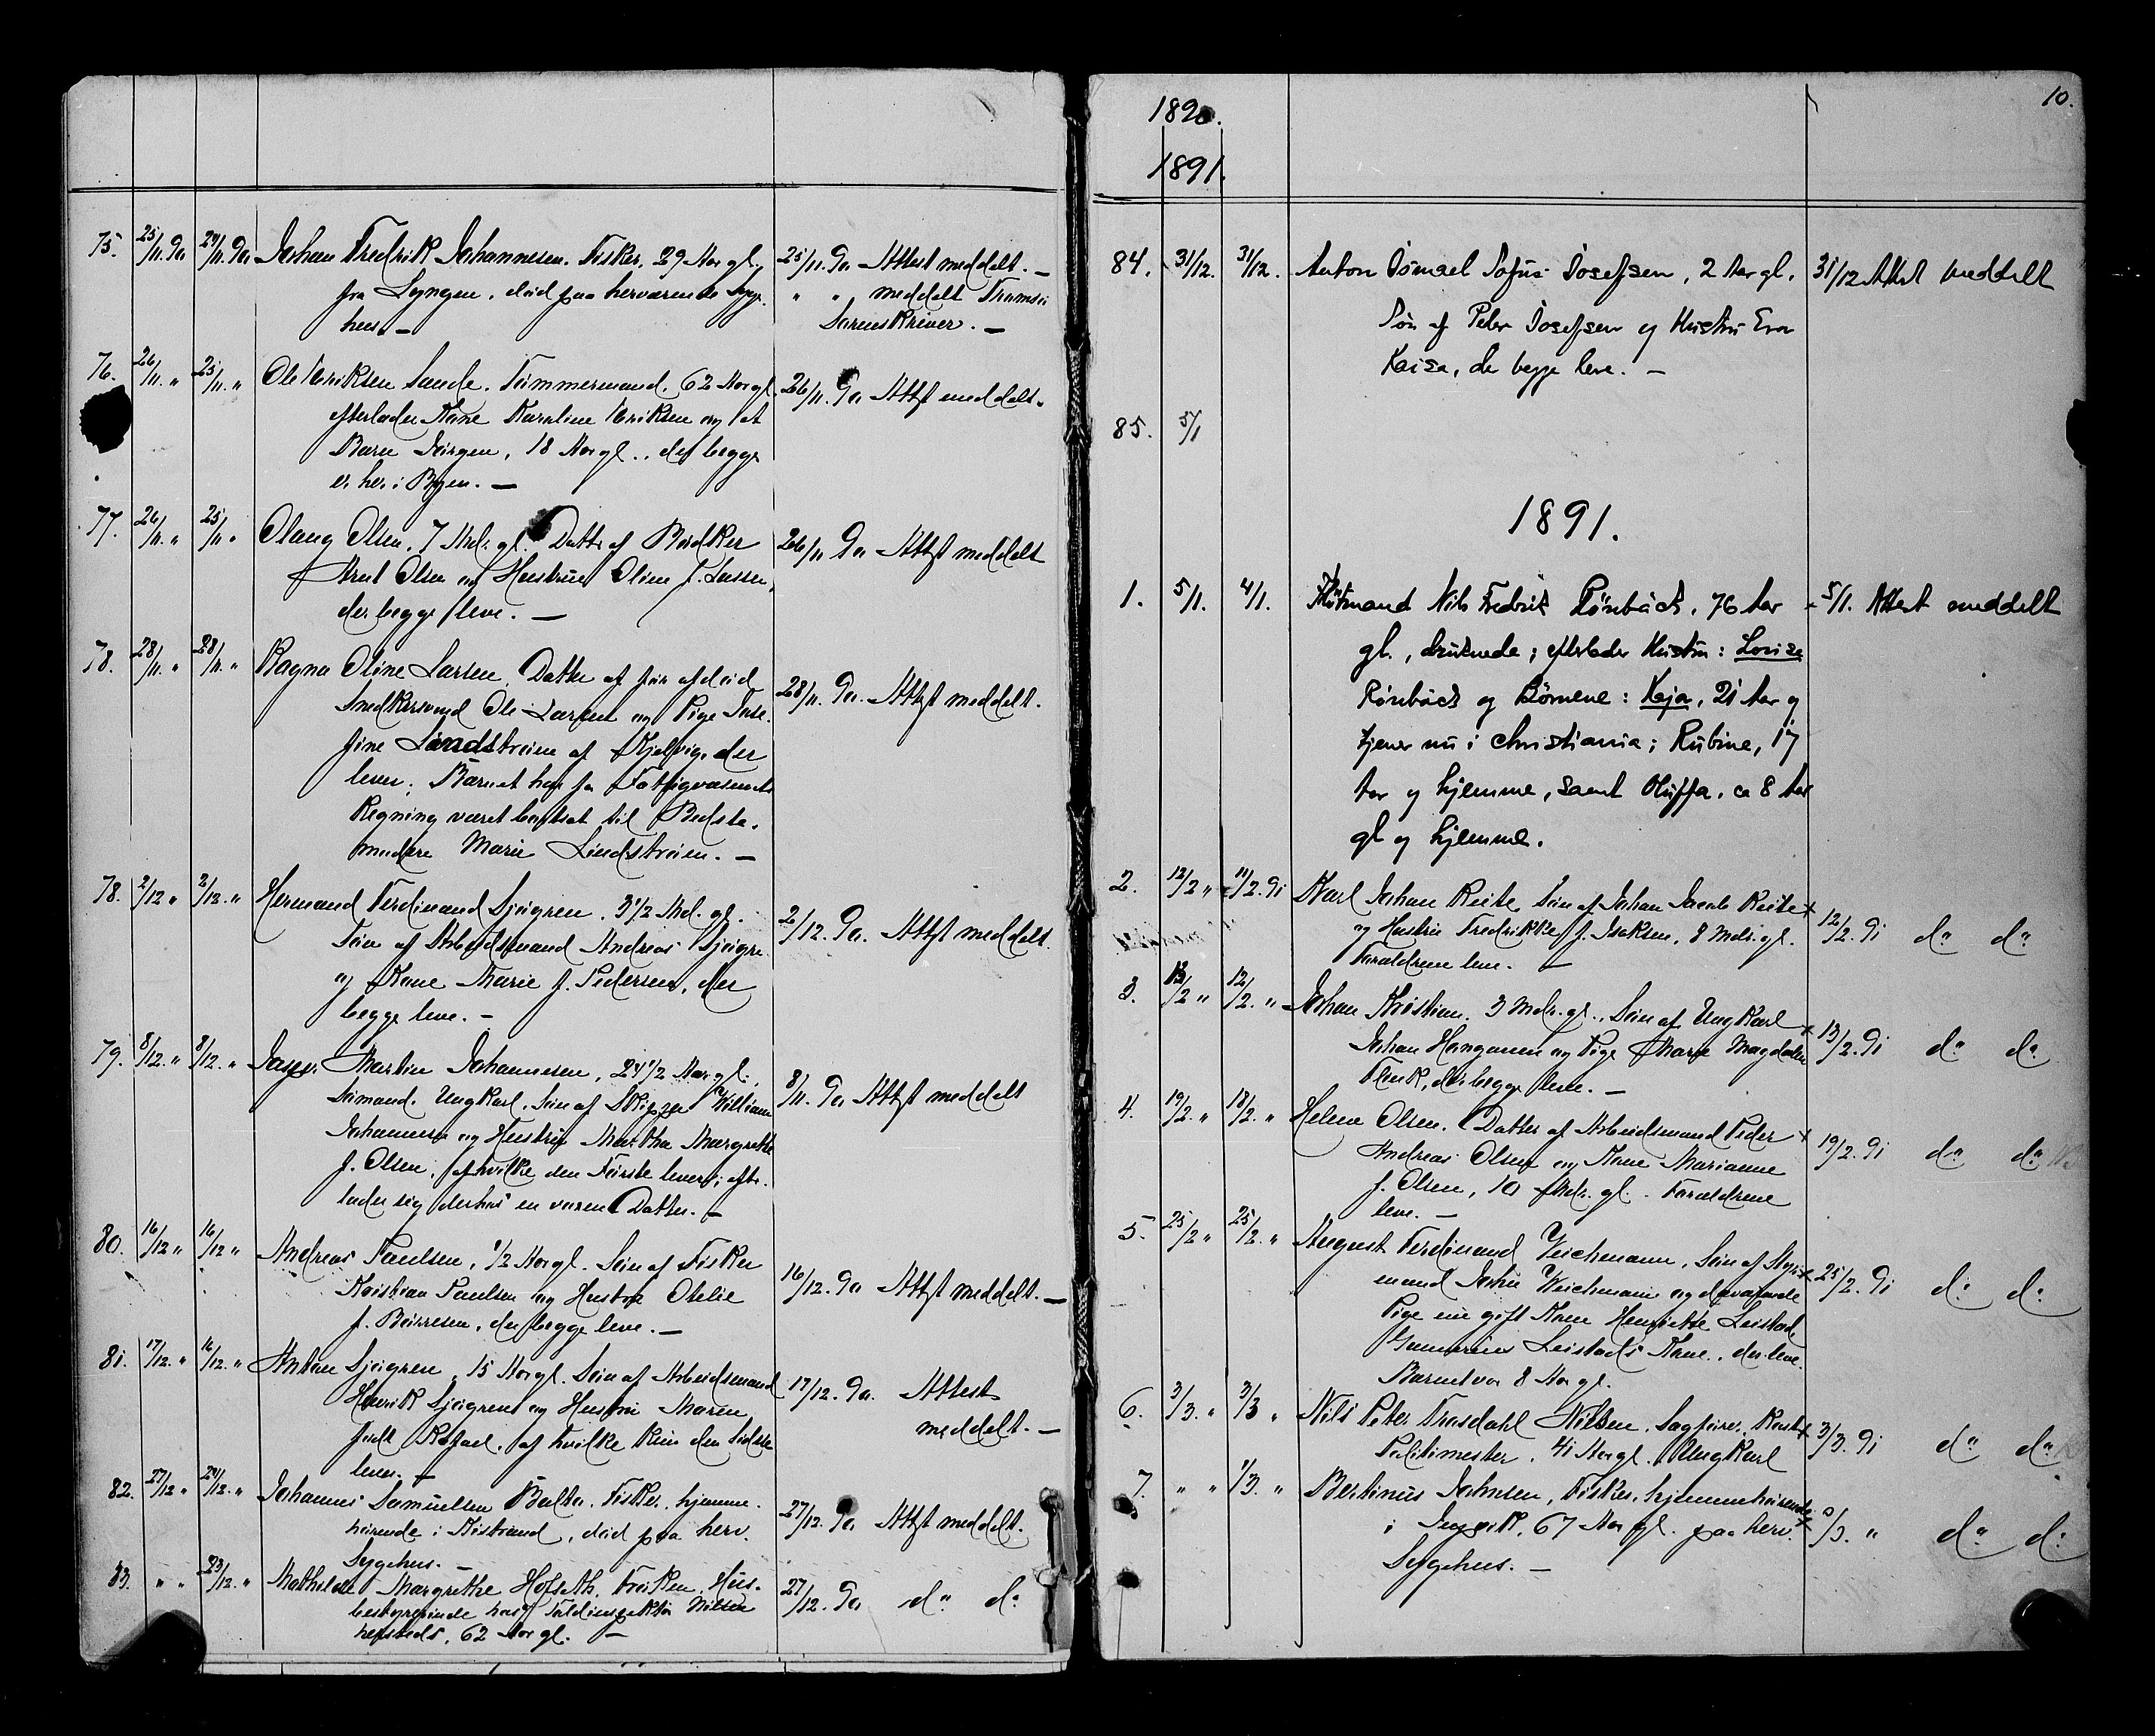 75. 25/11.90 24/11.90 Johan Fredrik Johannesen. Fisker. 29 Aar gl., 25/11.90 Attest meddelt. —
fra Lyngen, død paa herværende Syge- " " meddelt Tromsø
hus. — Sorenskriver. —
76. 26/11. " 25/11. " Ole Eriksen Sande. Tømmermand. 62 Aar gl. 26/11.90 Attest meddelt.
efterlader Kone Karoline Eriksen og et
Barn Jørgen, 18 Aar gl., der begge
er her i Byen. —
77. 26/11. " 25/11. " Olaug Olsen, 7 Md. gl. Datter af Bødker 26/11 90 Attest meddelt
Arnt Olsen og Hustru Oline f. Larsen,
der begge leve. —
78. 28/11. " 28/11. " Ragna Oline Larsen. Datter af før afdød
Snedkersvend Ole Larsen og Pige Jose- 28/11. 90. Attest meddelt.
fine Lindstrøm af Kjelvig, der
lever; Barnet har for Fattigvæsenets
Regning været bortsat til Bedste-
moderen Marie Lindstrøm. —
78. 2/12 " 2/12. " Hermand Ferdinand Sjøgren. 3 1/2 Md. gl. 2/12. 90. Attest meddelt.
Søn af Arbeidsmand Andreas Sjøgren
og Kone Marie f. Pedersen, der
begge leve. —
79. 8/12. " 8/12. " Martin Johannesen, 24 1/2 Aar gl., 8/11. 90 Attest meddelt
Sømand. Ungkarl. Søn af Skipper William
Johannesen og Hustru Martha Margrethe
f. Olsen, af hvilke den Første lever; efter-
lader sig derhos en voxen Datter. —
80. 16/12 " 16/12 " Andreas Paulsen, 1/2 Aar gl. Søn af Fisker 16/12. 90 Attest meddelt. —
Kristian Paulsen og Hustru Otelie
f. Børresen, der begge leve. —
81. 17/12. " 16/12. " Anton Sjøgren, 15 Aar gl. Søn af Arbeidsmand 17/12. 90. Attest
Henrik Sjøgren og Hustru Maren meddelt. —
født Rafael, af hvilke kun den sidste
lever. —
82. 27/12 " 24/12. " Johannes Samuelsen Balto. Fisker, hjemme- 27/12. 90 Attest meddelt.
hørende i Kistrand, død paa herv.
Sygehus. —
83. " " 23/12. " Mathilde Margrethe Hofseth. Frøken, Hus- 27/12. 90 do do
bestyrerinde hos Toldinspektør Nilsen
hersteds, 62 Aar gl. —
1890. 10.
1891.
84. 31/12. 31/12. Anton Ismael Sofus Josefsen, 2 Aar gl. 31/12 Attest meddelt
Søn af Peter Josefsen og Hustru Eva
Kaisa, der begge leve. —
85. 5/1
1891.
1. 5/1. 4/1. Nils Fredrik Rönbäck, 76 Aar 5/1. Attest meddelt
gl., druknede; efterlader Hustru: Lovise
Rönbäck og Börnene: Kaja, 21 Aar og
tjener nu i Christiania; Rubine, 17
Aar og hjemme, samt Oluffa, ca 8 Aar
gl og hjemme.
2. 12/2 " 11/2. 91 Karl Johan Reite. Søn af Johan Jacob Reite + 12/2. 91 do do
og Hustru Fredrikke f. Isaksen, 8 Mdr. gl.
Forældrene leve. —
3. 13/2 " 12/2. " Johan Kristian. 3 Mdr. gl., Søn af Ungkarl + 13/2. 91 do do
Johan Hansen og Pige Marie Magdalene
Flink, der begge leve. —
4. 19/2. " 18/2. " Helene Olsen. Datter af Arbeidsmand Peder + 19/2. 91 do do
Andreas Olsen og Kone Marianne
f. Olsen, 10 Mdr. gl. Forældrene
leve. —
5. 25/2 " 25/2. " August Ferdinand Weichmann, Søn af Styr- + 25/2. 91 do do
mand John Weichmann og daværende
Pige nu gift Kone Henriette Leistad,
Leistads Kone, der leve.
Barnet var 8 Aar gl.
6. 3/3. " 3/3 " Nils Peter Trasdahl Nilsen. Sagfører, Konst. + 3/3. 91 do do
Politimester. 41 Aar gl. Ungkarl
7. " " 1/3. " Bertinus Johnsen, Fisker, hjemmehørende + 3/3. " do do
i 67 Aar gl. paa herv.
Sygehus. —